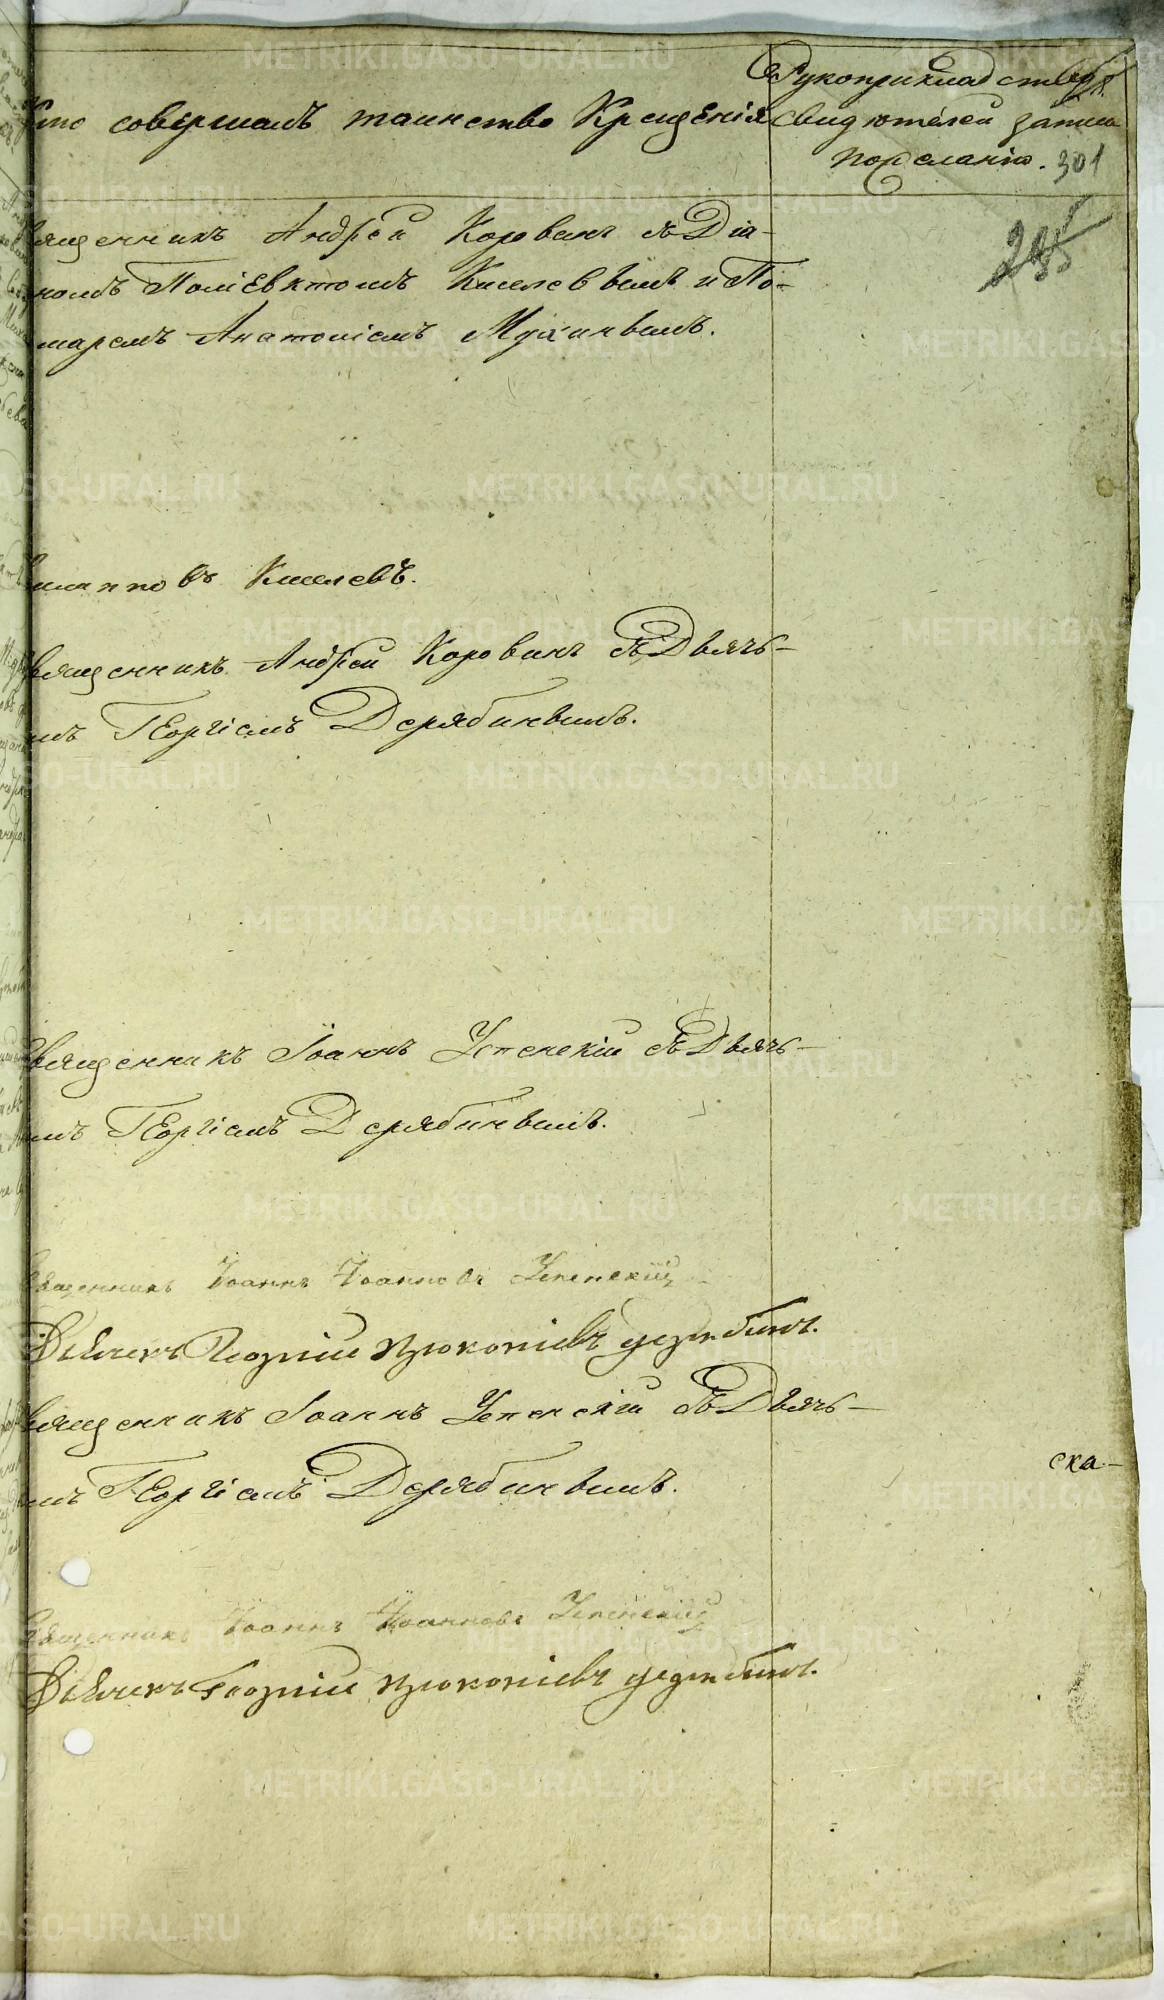 Кто совершалъ таинство Крещенія
Рукоприкладство
свидѣтелей записи
по желанію. 301
Священникъ Андрей Коровинъ съ Діа-
кономъ Поліевктомъ Киселевымъ и По-
намаремъ Анатоліемъ Мухинымъ.
245
Филипповъ Киселевъ.
Священникъ Андрей Коровинъ съ Дьячь-
комъ Георгіемъ Дерябинымъ.
Священникъ Іоаннъ Успенскій съ Дьячь-
комъ Георгіемъ Дерябинымъ.
Священникъ Іоаннъ Іоанновъ Успенскій
Дьячекъ Георгій Прокопіевъ Дерябинъ.
Священникъ Іоаннъ Успенскій съ Дьячь-
комъ Георгіемъ Дерябинымъ.
ска-
Священникъ Іоаннъ Іоанновъ Успенскій
Дьячекъ Георгій Прокопіевъ Дерябинъ.
METRIKI.GASO-URAL.RU